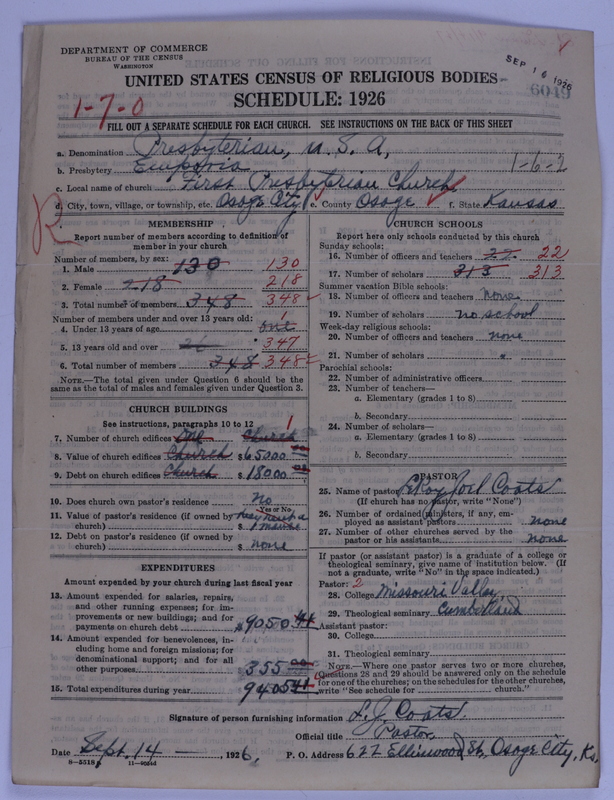 DEPARTMENT OF COMMERCE
BUREAU OF THE CENSUS
WASHINGTON
SEP 16 1926
6049
UNITED STATES CENSUS OF RELIGIOUS BODIES
SCHEDULE: 1926
1-7-0
FILL OUT A SEPARATE SCHEDULE FOR EACH CHURCH. SEE INSTRUCTIONS ON THE BACK OF THIS SHEET
a. Denomination Presbyterian, U. S. A,
b. Presbytery Emporia 1-6-2
c. Local name of church First Presbyterian Church
d. City, town, village, or township, etc. Osage City e. County Osage f. State Kansas
R
MEMBERSHIP
Report number of members according to definition of member in your church
Number of members, by sex:
1. Male 130 130
2. Female 218 218
3. Total number of members 348 348
Number of members under and over 13 years old:
4. Under 13 years of age one 1
5. 13 years old and over 347
6. Total number of members 348 348
NOTE.—The total given under Question 6 should be the same as the total of males and females given under Question 3.
CHURCH BUILDINGS
See instructions, paragraphs 10 to 12
7. Number of church edifices one Church 1
8. Value of church edifices Church $65000 00
9. Debt on church edifices Church $18000 00
10. Does church own pastor's residence? No
Yes or No
11. Value of pastor's residence (if owned by church) $
12. Debt on pastor's residence (if owned by church) $ none
EXPENDITURES
Amount expended by your church during last fiscal year
13. Amount expended for salaries, repairs, and other running expenses; for improvements or new buildings; and for payments on church debt $9050.41
14. Amount expended for benevolences, including home and foreign missions; for denominational support; and for all other purposes 355.00
15. Total expenditures during year $9405.41
CHURCH SCHOOLS
Report here only schools conducted by this church
Sunday schools:
16. Number of officers and teachers 22 22
17. Number of scholars 313 313
Summer vacation Bible schools:
18. Number of officers and teachers none
19. Number of scholars no school
Week-day religious schools:
20. Number of officers and teachers none
21. Number of scholars "
Parochial schools:
22. Number of administrative officers
23. Number of teachers—
a. Elementary (grades 1 to 8)
b. Secondary
24. Number of scholars—
a. Elementary (grades 1 to 8)
b. Secondary
PASTOR
25. Name of pastor Coats
(If church has no pastor, write "None")
26. Number of ordained ministers, if any, employed as assistant pastors none
27. Number of other churches served by the pastor or his assistants none
If pastor (or assistant pastor) is a graduate of a college or theological seminary, give name of institution below. (If not a graduate, write "No" in the space indicated.)
Pastor: 2
28. College Missouri Valley
29. Theological seminary Cumberland
Assistant pastor:
30. College
31. Theological seminary
NOTE.—Where one pastor serves two or more churches, Questions 28 and 29 should be answered only on the schedule for one of the churches; on the schedules for the other churches, write "See schedule for church."
Signature of person furnishing information L. J. Coats
Official title Pastor
Date Sept. 14, 1926. P. O. Address 622 Ellinwood St, Osage City, Ks.
8-5518 11-9064d